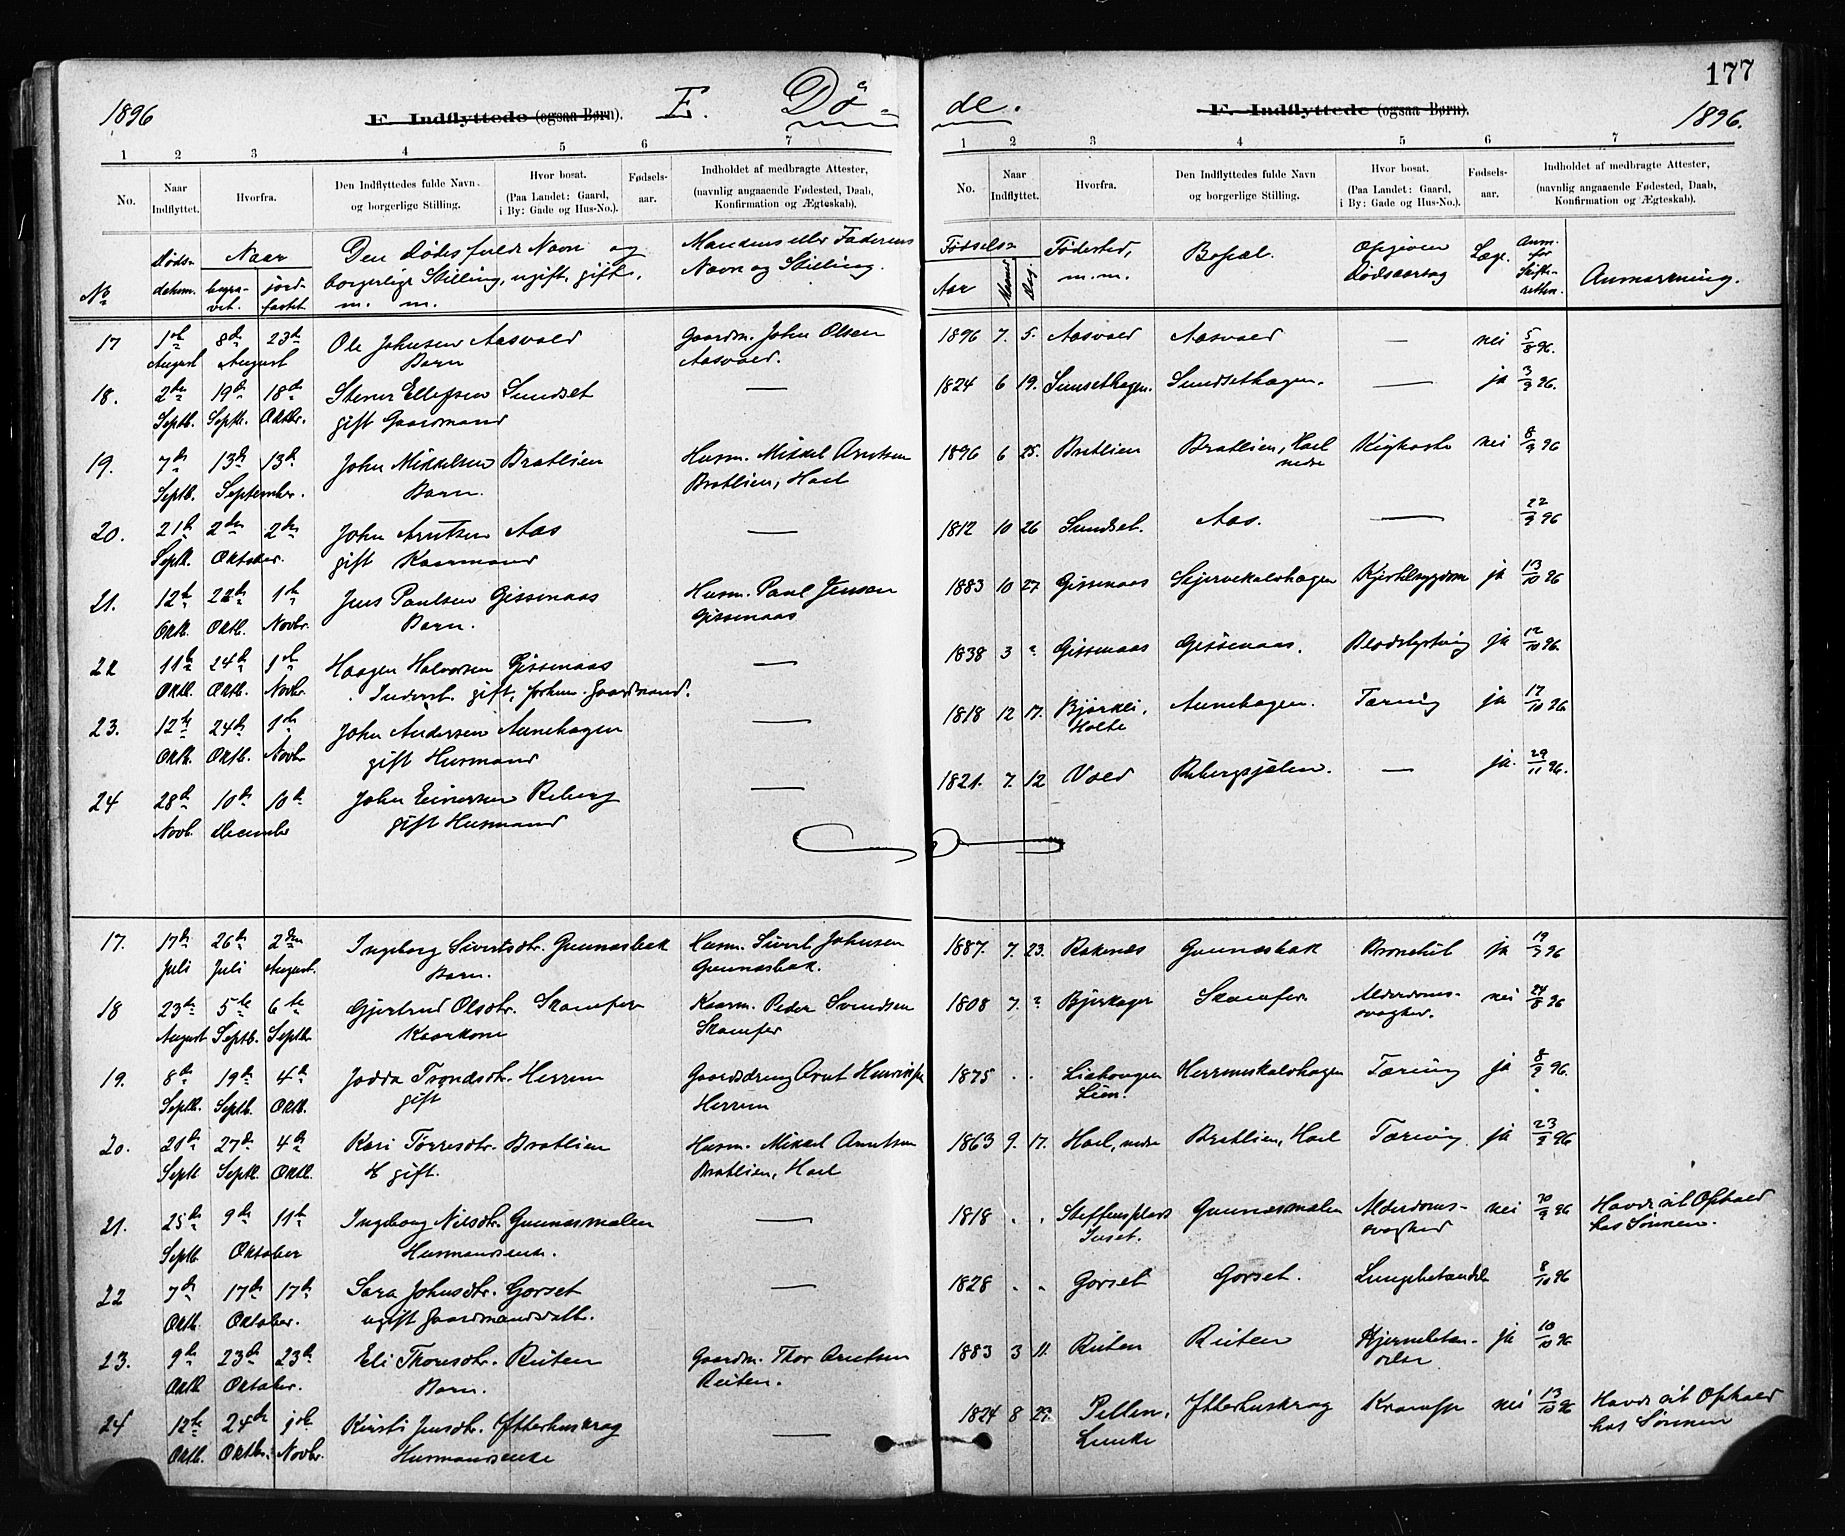 177
1896
F. Indflyttede (ogsaa Børn).
E. Dö-
de.
F. Indflyttede (ogsaa Børn).
1896.
1 2 3 4 5 6 7
1 2 3 4 5 6 7
No.
Naar Indflyttet.
Hvorfra.
Den Indflyttedes fulde Navn og borgerlige Stilling.
Hvor bosat. (Paa Landet: Gaard, i By: Gade og Hus-No.).
Fødselsaar.
Indholdet af medbragte Attester, (navnlig angaaende Fødested, Daab, Konfirmation og Ægteskab).
No.
Naar Indflyttet.
Hvorfra.
Den Indflyttedes fulde Navn og borgerlige Stilling.
Hvor bosat. (Paa Landet: Gaard, i By: Gade og Hus-No.).
Fødselsaar.
Indholdet af medbragte Attester, (navnlig angaaende Fødested, Daab, Konfirmation og Ægteskab).
No
Døds-
datum.
Naar
begra-
vet.
jord-
fæstet
Den Dødes fulde Navn og
borgerlige Stilling, ugift, gift,
m. m.
Mandens eller Faderens
Navn og Stilling.
Fødsels-
Aar
Fødested,
m. m.
Bopæl.
Opgiven
Dødsaarsag
Læge.
Anm.
for
Skifte-
retten.
Anmærkning.
17 1ste 8de 23de Ole Johnsen Aasvold Gaardm. John Olsen 1896 7. 5. Aasvold Aasvold — nei 5/8 96.
August August Barn Aasvold.
18. 2den 19de 18de Stener Ellefsen Sundset — 1824 6 19. Sunsethagen. Sundsethagen. — ja 3/9 96.
Septb. Septb. Oktbr. gift Gaardmand
19. 7de 13de 13de John Mikkelsen Bratlien Husm. Mikkel Arntsen 1896 6 25. Bratlien Bratlien, Hoel nedre Kighoste nei 8/9 96
Septb. September. Barn. Bratlien, Hoel
20. 21de 2den 2den John Arntsen Aas — 1812 10 26 Sundset. Aas. — 22/9 96
Septb. Oktober. gift Kaarmand
21. 12te 22de 1ste Jens Paulsen Gissenaas Husm. Paul Jensen 1883 10 27 Gissenaas Kjertelsygdom ja 13/10 96
Oktb. Oktb. Novbr. Barn. Gissenaas
22 11te 24de 1ste Haagen Halvorsen Gissenaas — 1838 3 ? Gissenaas Gissenaas. Blodstyrtning ja 12/10 96.
Oktb. Oktb. Novbr. Inderst. gift, forhen. Gaardmand.
23. 12te 24de 1ste John Andersen Aunehagen — 1818 12 17. Bjørkli, Holte Aunehagen. Tæring ja 17/10 96.
Oktb. Oktb. Novbr gift Husmand
24 28de 10de 10de John Einersen Reberg — 1821. 7. 12 Vold Rebergsjølen. — ja. 29/11 96.
Novb. December gift Husmand
17. 17de 26de 2den Ingeborg Sivertsdtr. Gunnesbak Husm. Sivert Johnsen 1887. 7. 23. Reknes Gunnesbak ja
Juli Juli August. Barn. Gunnesbak.
18 23de 5te 6te Gjertrud Olsdtr. Skamfer Kaarm. Peder Svendsen 1808 7. ? Bjerkager Skamfer Alderdoms- nei 24/8 96
August Septb. Septbr. Kaarkone Skamfer svaghed.
19. 8de 19de 4de Jodda Trondsdtr. Herrem Gaarddreng Arnt 1875 . . Liahaugen Herremskalshagen Tæring ja 8/9 96.
Septb. Septb. Oktb. gift Herrem Lien.
20. 21de 27de 4de Kari Torresdtr. Bratlien Husm. Mikkel Arntsen 1863 9. 17. Hoel, nedre Bratlien, Hoel Tæring. ja 23/9 96
Septb Septb. Oktb. gift. Bratlien, Hoel
21. 25de 9de 11te Ingeborg Nilsdtr. Gunnesmoen — 1818 . . Steffensplads Gunnesmoen Alderdoms- nei 30/9 96 Havde sit Ophold
Septb. Oktober Husmandsenke. Inset. svaghed hos Sønnen.
22 7de 17de 17de Sara Johnsdtr. Gorset — 1828 . . Gorset Gorset. Lungebetændelse 8/10 96
Oktb. Oktober. ugift Gaardmandsdatter.
23. 9de 23de 23de Eli Thorsdtr. Reiten Gaardm. Thor Arntsen 1883 3 11. Reiten Reiten Hjernebetæn- ja 10/10 96
Oktb Oktober. Barn. Reiten. delse
24 12te 24de 1ste Kirsti Jensdtr. — 1824 8 29. Pellen, Krampe nei 13/10 96 Havde sit Ophold
Oktb. Oktbr. Novbr. Husmandsenke hos Sønnen